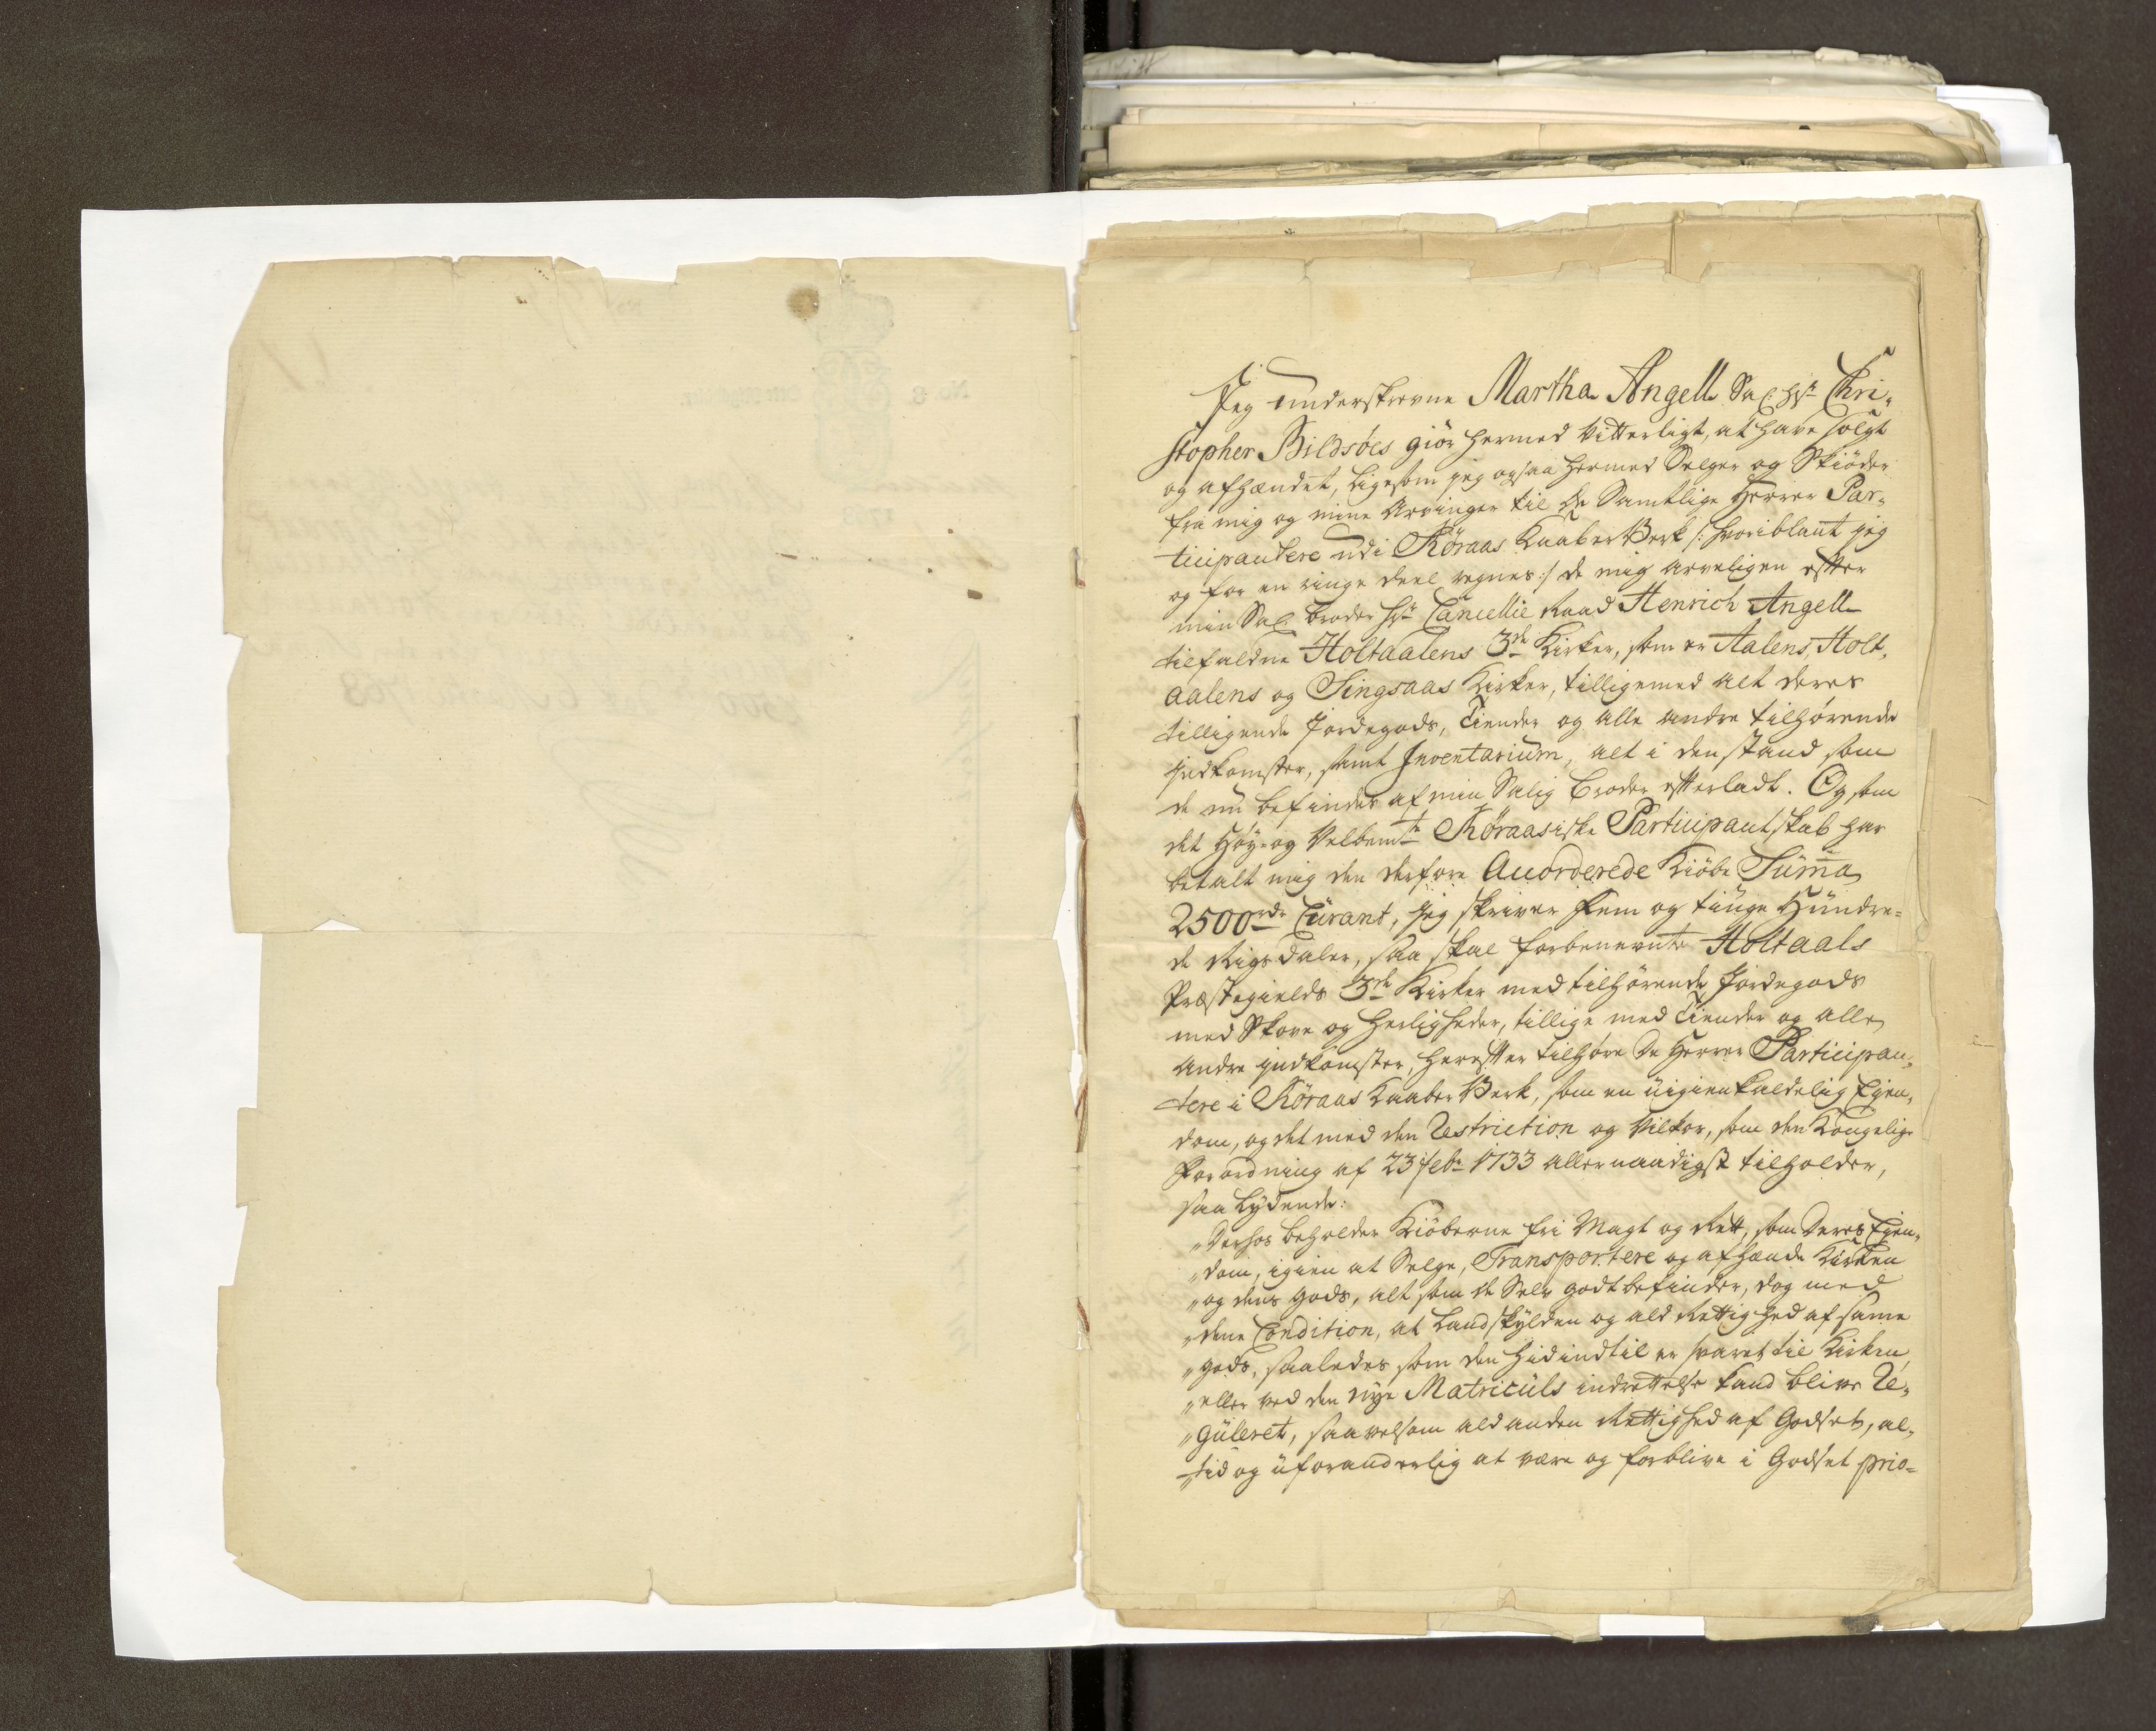 Jeg underskrevne Martha Angell Sal: Hr: Chri-
stopher Bildsöes giör hermed Vitterligt, at have solgt
og afhændet, ligesom jeg ogsaa hermed Selger og Skiöder
fra mig og mine Arvinger til de Samtlige Herrer Par-
ticipantere udi Röraas Kaaber Verk /: hvoriblant jeg
og for en ringe deel regnes :/ de mig arveligen efter
min Sal: broder Hr: Cancellie Raad Henrich Angell
tilfaldne Holtaalens 3de Kirker, som er Aalens, Holt-
aalens og Singsaas Kirker, tilligemed alt deres
tilligende Jordegods, Tiender og alle andre tilhörende
Indkomster, samt Inventarium, alt i den stand som
de nu befindes af min Salig Broder efterladt. Og som
det Höy- og Velbemte Röraasiske Participantskab har
betalt mig den derfore Accorderede Kiöbe Suma
2500 rdr Curant, siger skriver Fem og tiuge Hundre-
de Rigsdaler, saa skal forbenevnte Holtaals
Præstegields 3de Kirker med tilhörende Jordegods
med Skove og Herligheder, tillige med Tiender og alle
andre indkomster, herefter tilhöre De Herrer Participan-
tere i Röraas Kaaber Verk, som en uigienkaldelig Eyen-
dom, og det med den Restriction og Vilkor, som den Kongelige
Forordning af 23 Febr: 1733 allernaadigst tilholder,
saa Lydende:
„Derhos beholder Kiöberne fri Magt og Rett, som Deres Eyen-
„dom, igien at Selge, Transportere og afhænde Kirken
„og dens gods, alt som de Selv godt befinder, dog med
„dene Condition, at Landskylden og ald Rettighed af same
„gods, saaledes som den hidindtil er svaret til Kirken,
„eller ved den nye Matriculs indrettelse kand blive Re-
„guleret, saavelsom ald anden Rettighed af Godset, al-
„tid og uforanderlig at være og forblive i Godset prio-